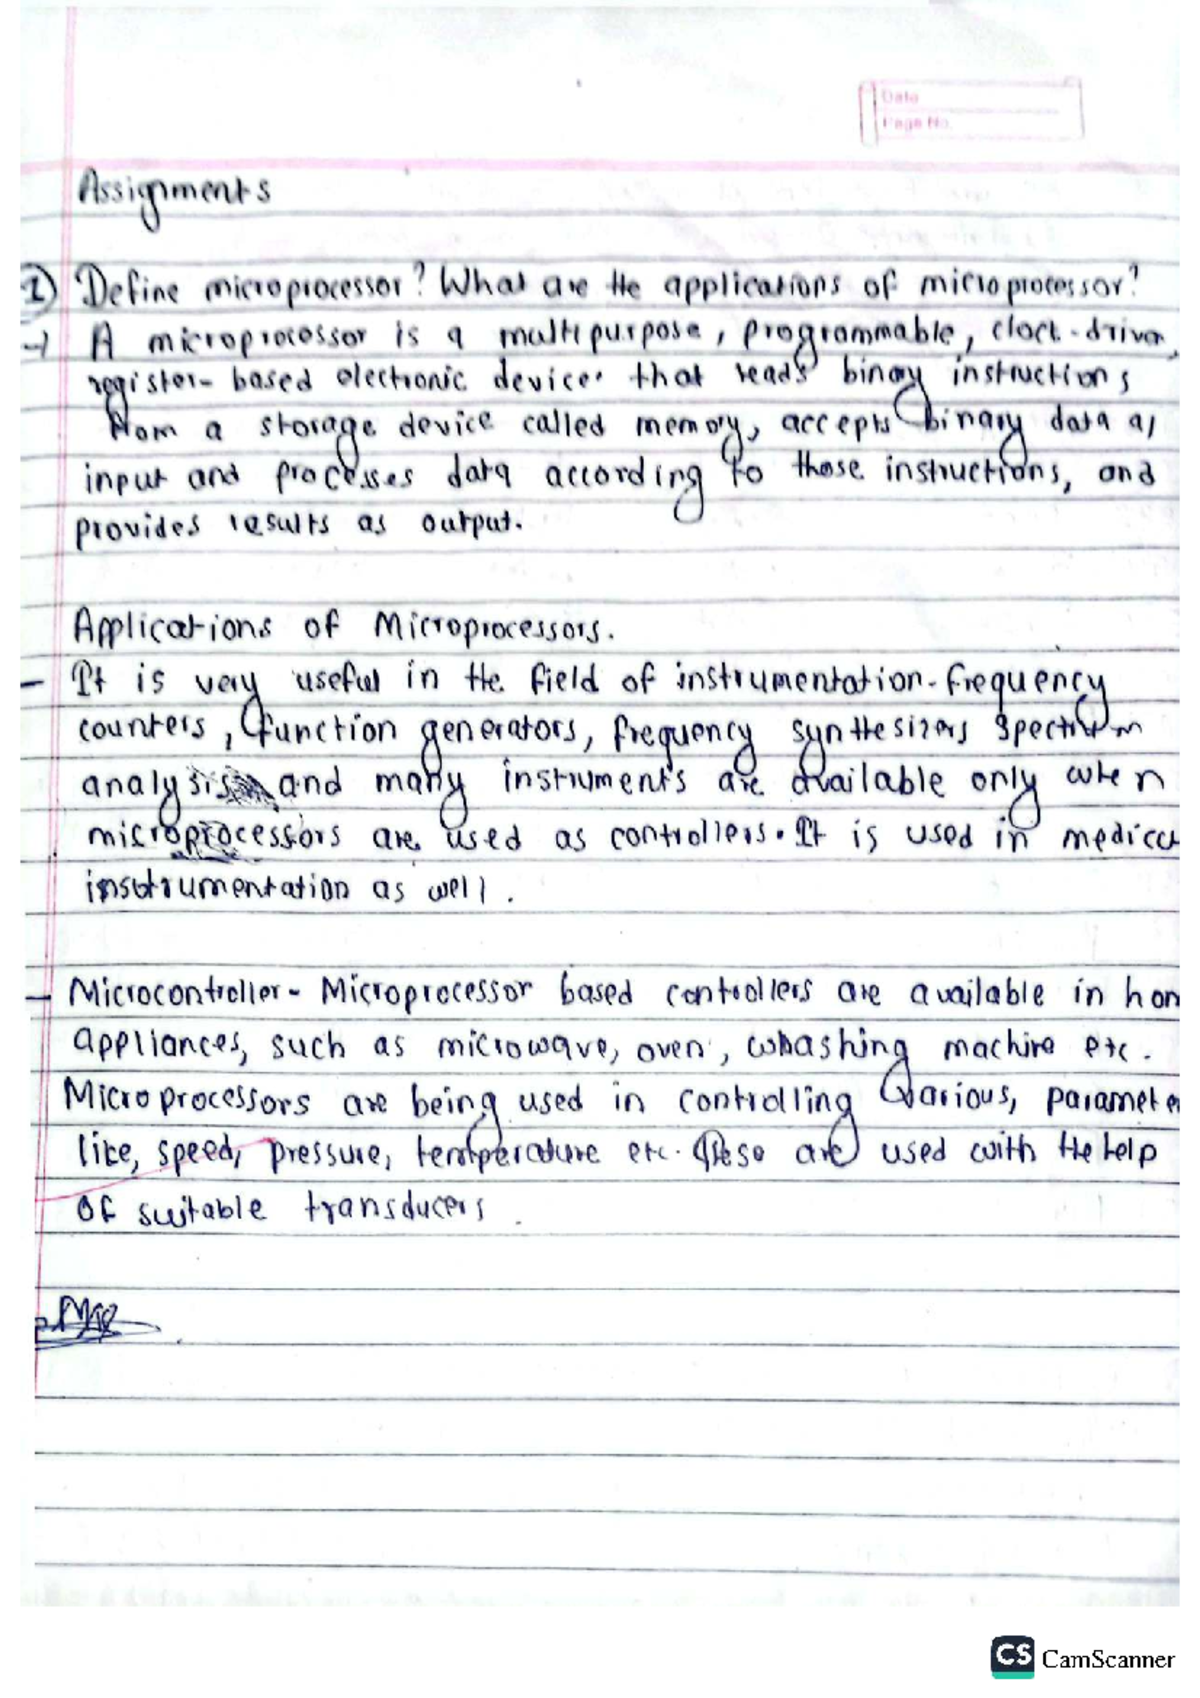 Date
Page No.
Assignments
1) Define microprocessor? What are the applications of microprocessor?
→ A microprocessor is a multipurpose, programmable, clock-driven,
register-based electronic device that reads binary instructions
from a storage device called memory, accepts binary data as
input and processes data according to those instructions, and
provides results as output.
Applications of Microprocessors.
- It is very useful in the field of instrumentation. frequency
counters, function generators, frequency synthesizers spectrum
analysis and many instruments are available only when
microprocessors are used as controllers. It is used in medical
instrumentation as well.
- Microcontroller - Microprocessor based controllers are available in hom
appliances, such as microwave, oven, washing machine etc.
Microprocessors are being used in controlling various, paramete
like, speed, pressure, temperature etc. These are used with the help
of suitable transducers.
CS CamScanner